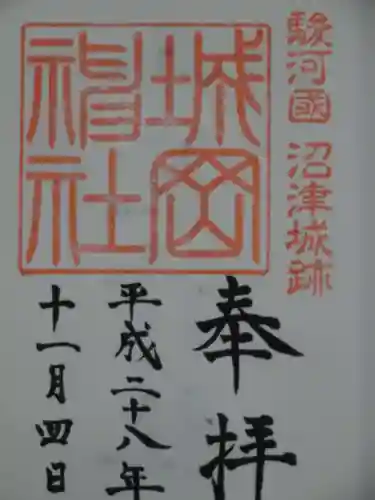 駿河國 沼津城跡
城岡神社
奉拝
平成二十八年
十一月四日